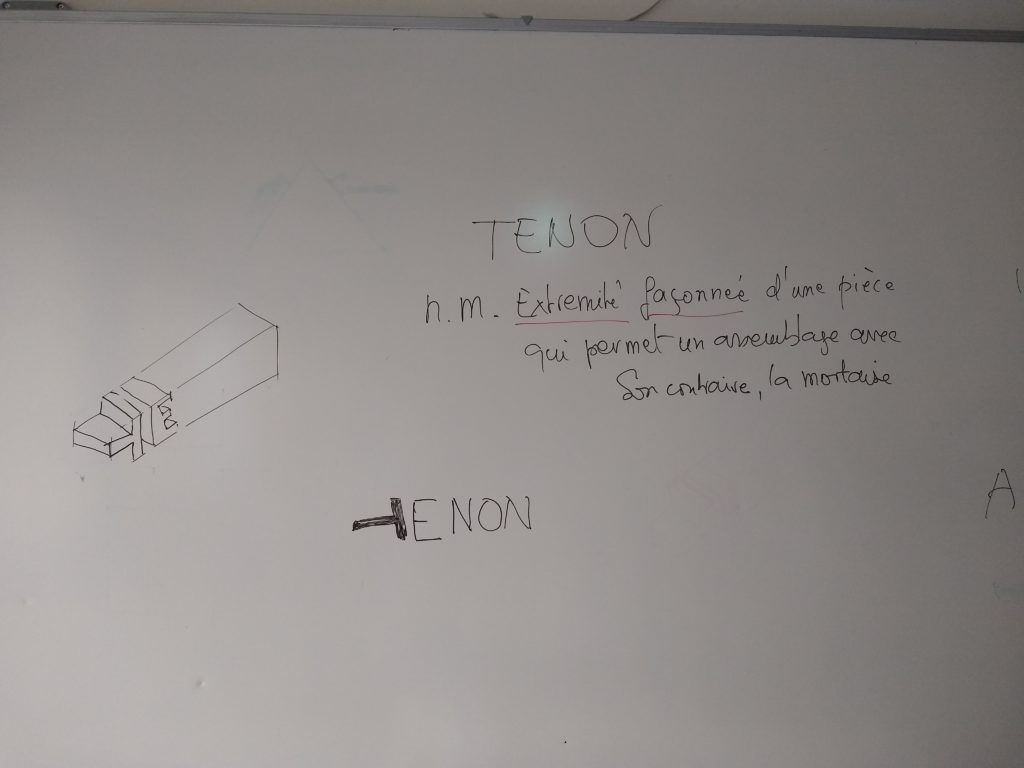 TENON
n.m. Extremité façonneé d'une pièce
qui permet un assemblage avec
Son contraire, la mortaise
TENON
A